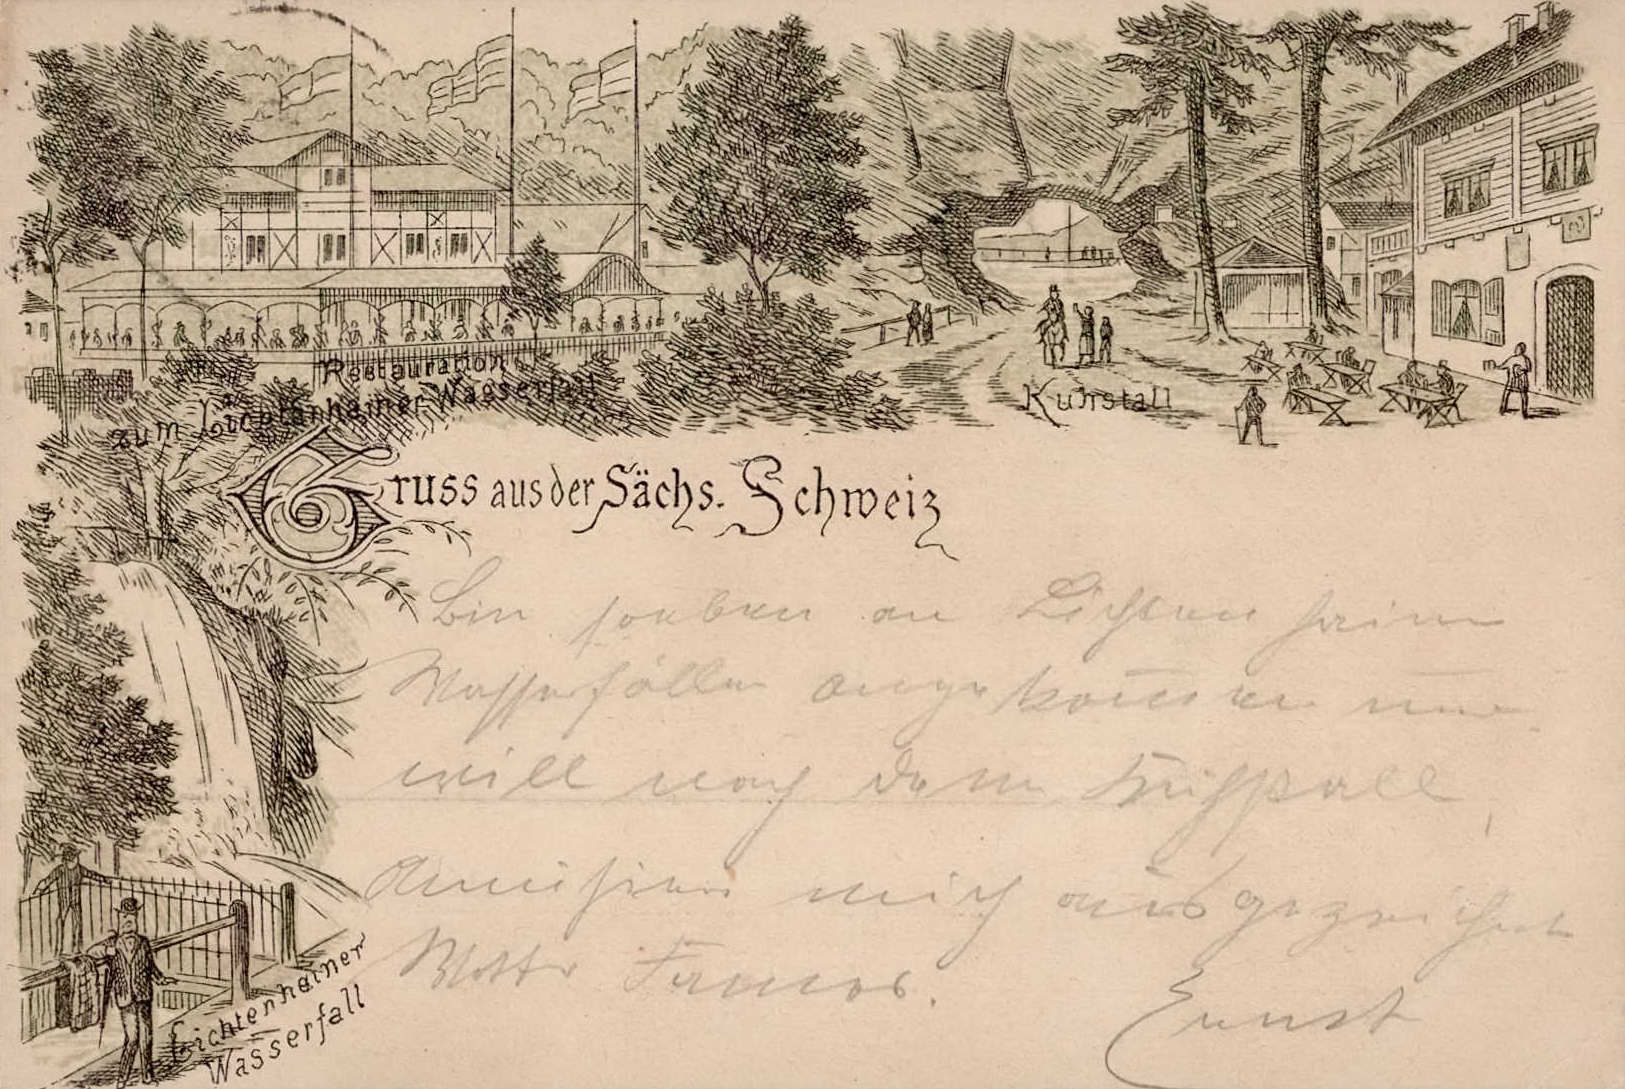 Restauration
zum Lichtenhainer Wasserfall
Kuhstall
Gruss aus der Sächs. Schweiz
Bin soeben an Lichtenhainer
Wasserfällen angekommen
will nach dem Kuhstall,
amüsiere mich ausgezeichnet
Ernst
Lichtenhainer
Wasserfall